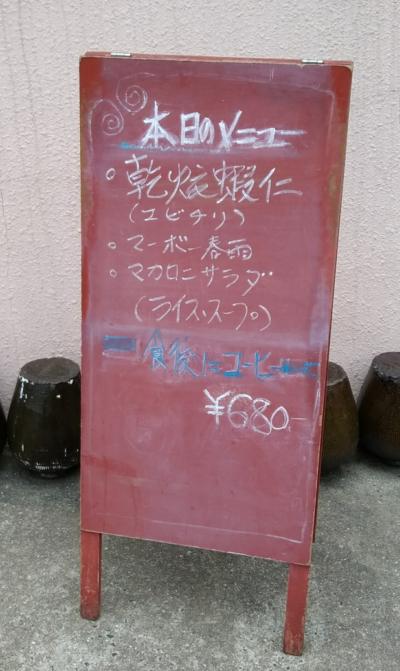 本日のメニュー
○乾焼蝦仁
(エビチリ)
○マーボー春雨
○マカロニサラダ
(ライス、スープ)
食後にコーヒー
¥680-